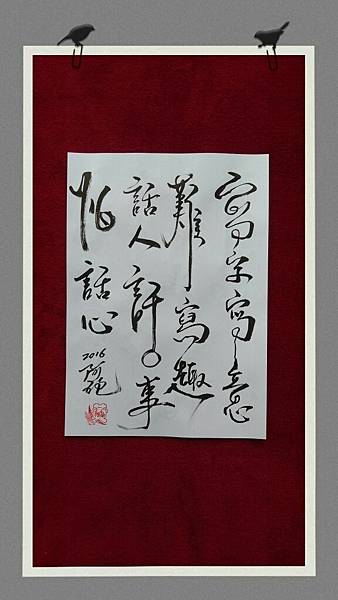 寫字寫意
難寫趣
話人 事
怕話心
2016 阿